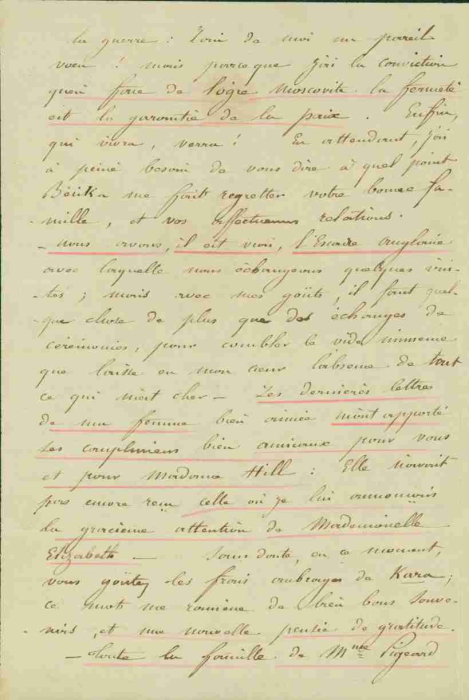 la guerre : loin de moi un pareil
voeu ! mais parceque j'ai la conviction
qu'en face de l'ogre moscovite la fermeté
est la garantie de la paix . Enfin,
qui vivra, verra ! En attendant, j'ai
à peine besoin de vous dire à quel point
Béïka me fait regretter votre bonne fa-
-mille, et vos affectueuses relations.
- nous avons, il est vrai, l'Escadre anglaise
avec laquelle nous échangeons quelques visi-
-tes ; mais avec mes goûts, il faut quel-
que chose de plus que des échanges de
cérémonies, pour combler le vide immense
que laisse en mon coeur l'absence de tout
ce qui m'est cher - Les dernières lettres
de ma femme bien aimée m'ont apporté
ses complimens bien amicaux pour vous
et pour Madame Hill : Elle n'avait
pas encore reçu celle où je lui annonçais
la gracieuse attention de Mademoiselle
Elizabeth - Sans doute, en ce moment,
vous goûtez les frais ombrages de Kara ;
ce mot me ramène de bien bons souve-
-nirs, et une nouvelle pensée de gratitude.
- toute la famille de Mme Pigeard